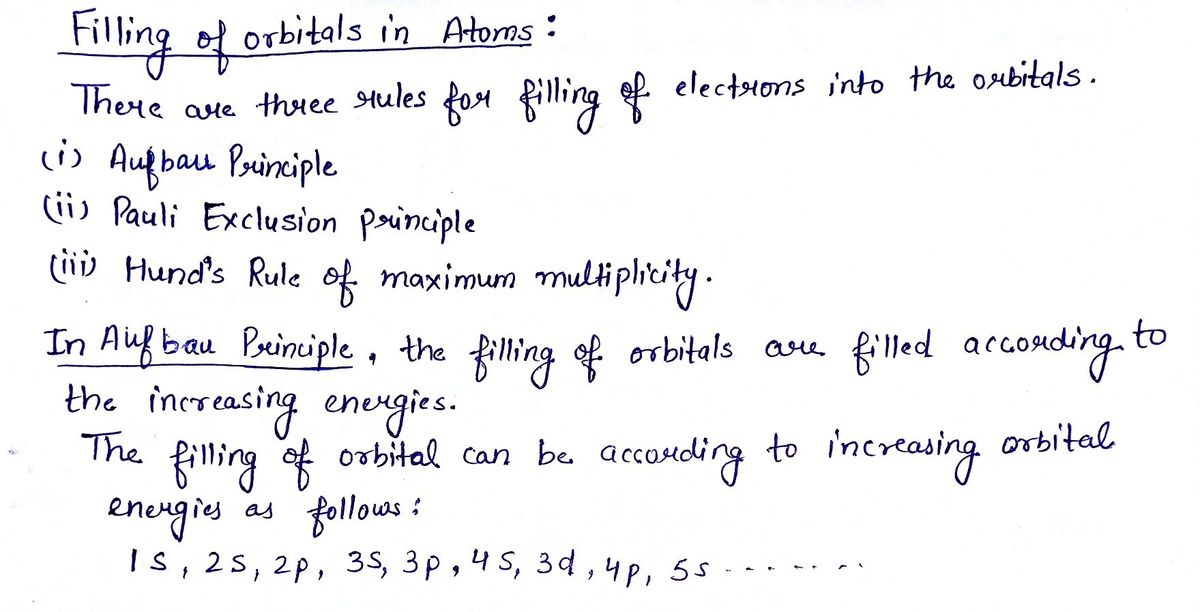 Filling of orbitals in Atoms :
There are three rules for filling of electrons into the orbitals.
(i) Aufbau Principle
(ii) Pauli Exclusion principle
(iii) Hund's Rule of maximum multiplicity.
In Aufbau Principle, the filling of orbitals are filled according to
the increasing energies.
The filling of orbital can be according to increasing orbital
energies as follows :
1s, 2s, 2p, 3s, 3p, 4s, 3d, 4p, 5s -------